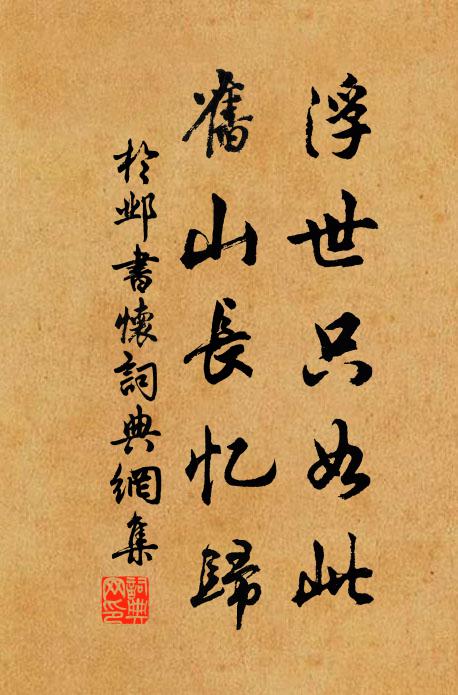 浮世只如此
舊山長忆歸
於邺書懷詞典網集
詞典
网印